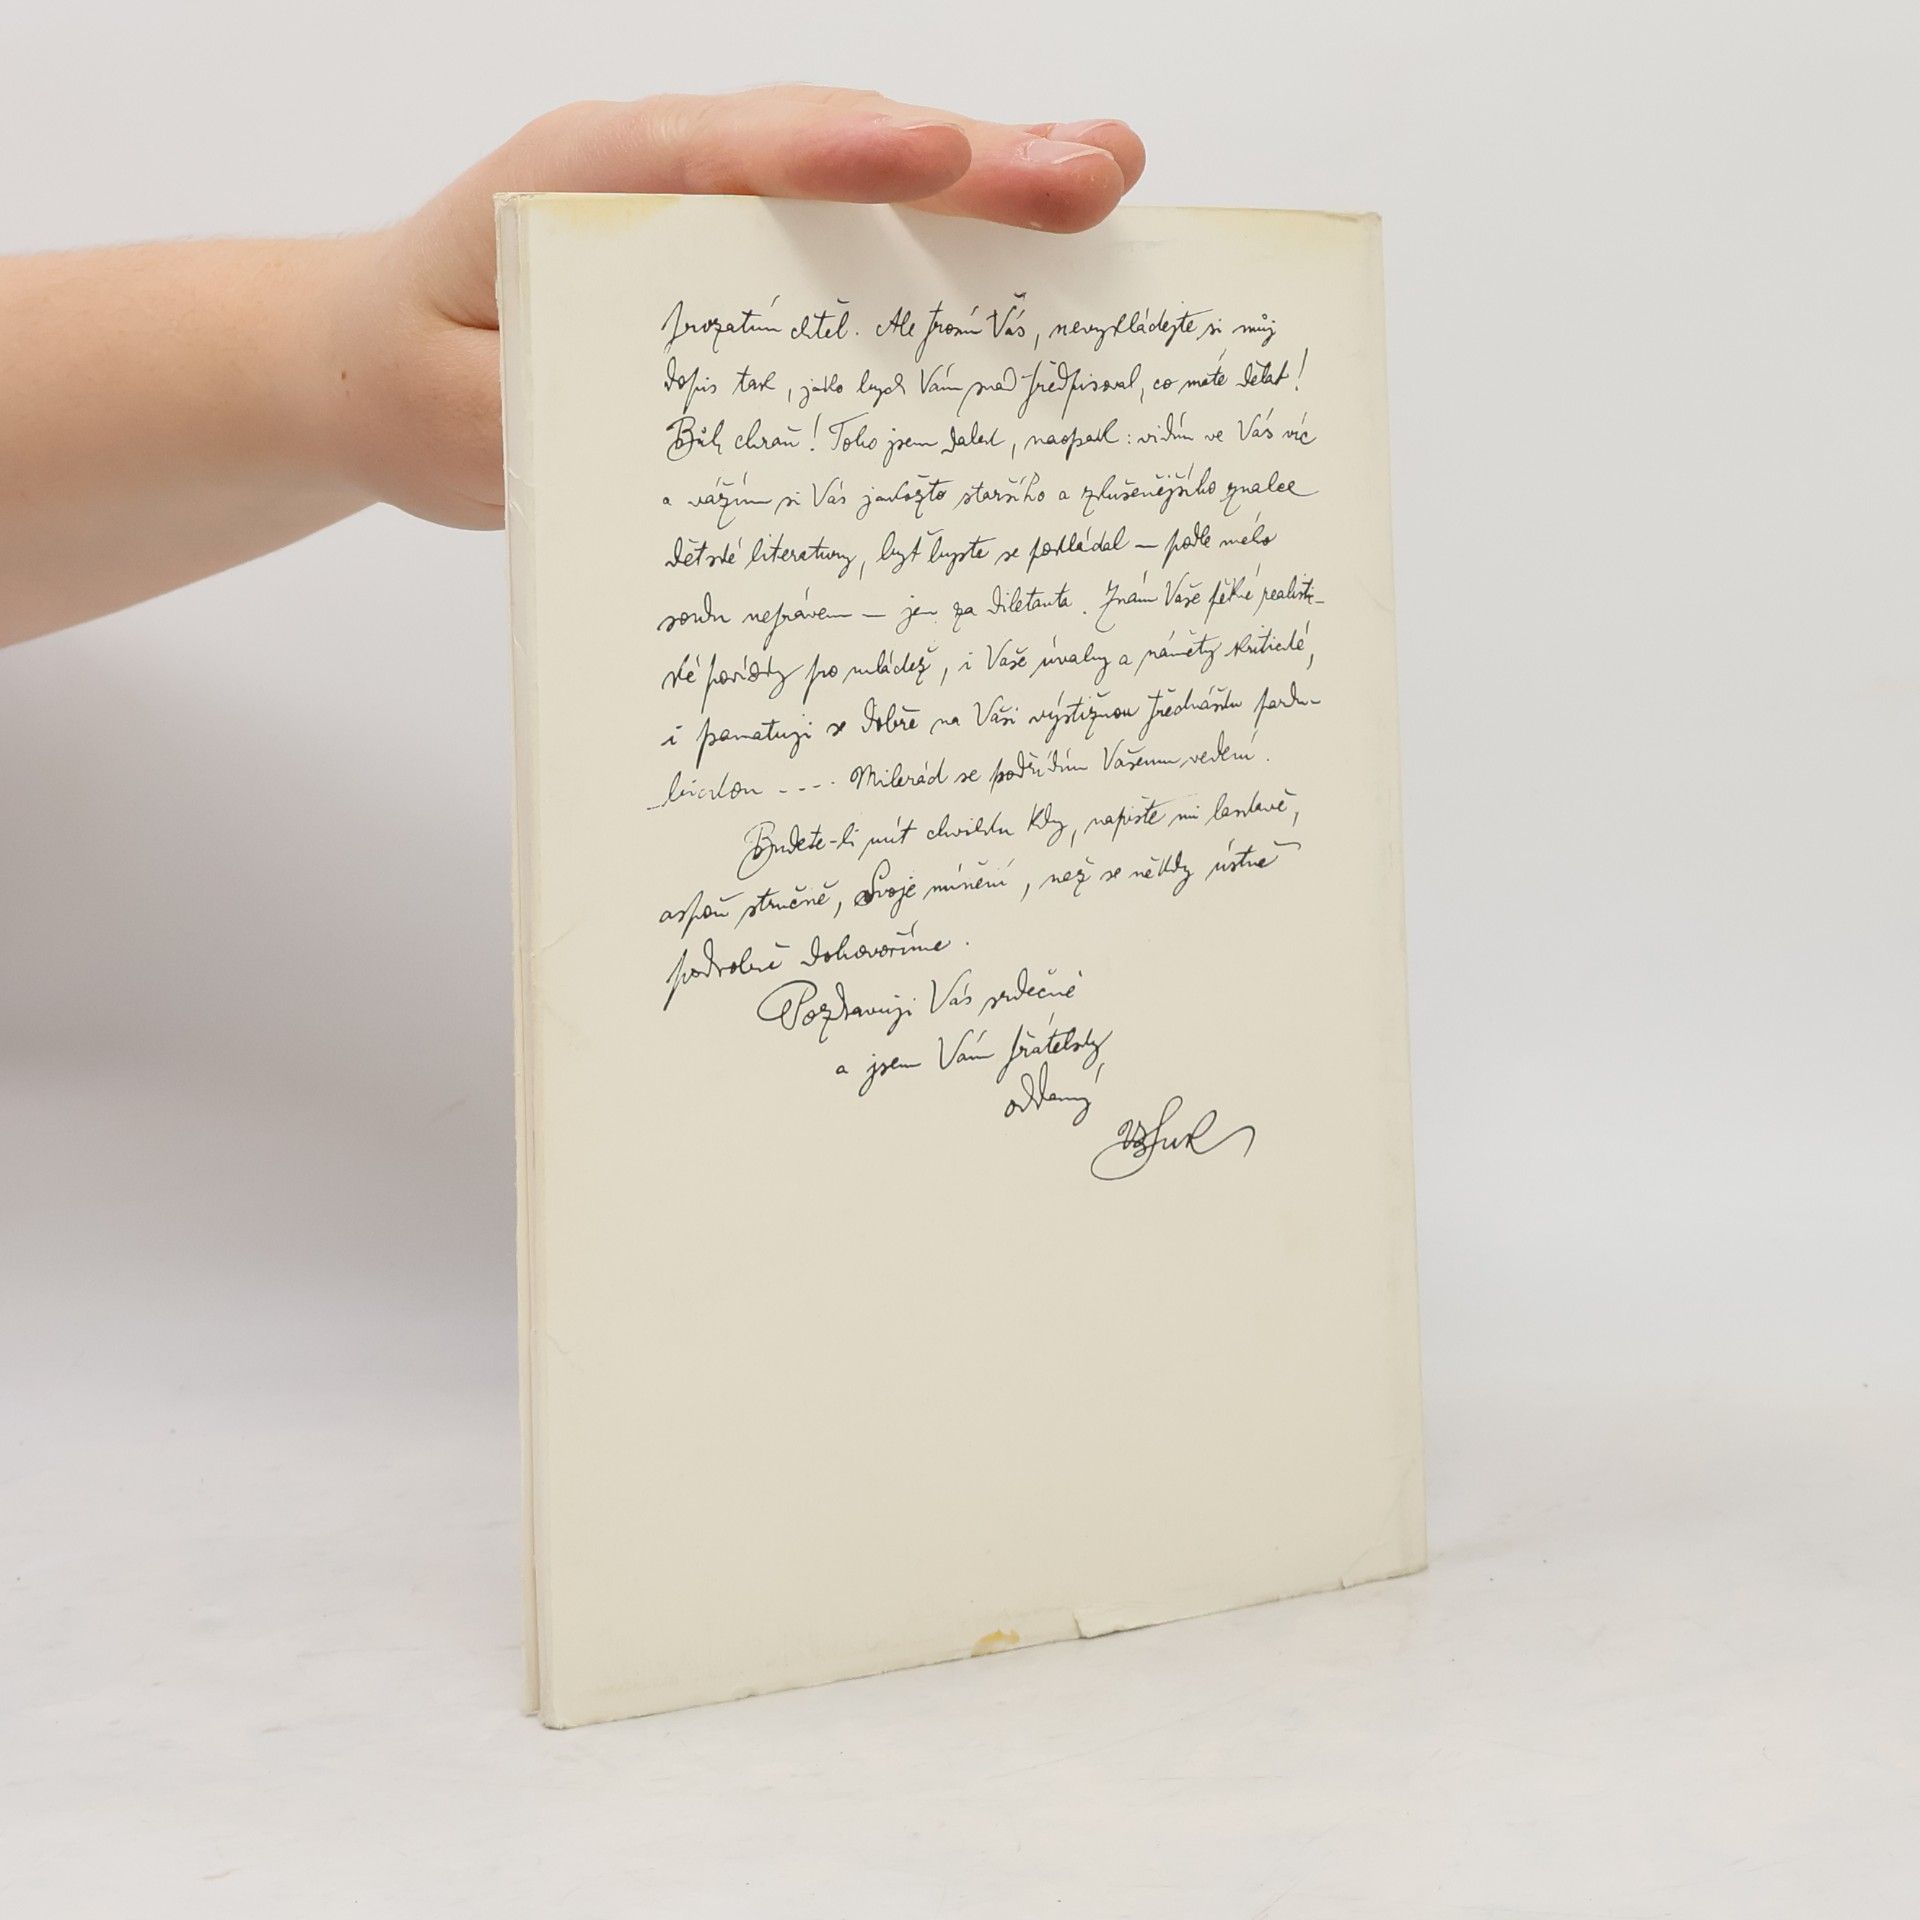 prozatím chtěl. Ale prosím Vás, nevykládejte si můj
dopis tak, jako bych Vám snad předpisoval, co máte dělat!
Bůh chraň! Toho jsem dalek, naopak: vidím ve Vás víc
a vážím si Vás jakožto staršího a zkušenějšího znalce
dětské literatury, byť byste se pokládal — podle mého
soudu neprávem — jen za diletanta. Znám Vaše pěkné realisti-
cké povídky pro mládež, i Vaše úvahy a náměty kritické,
i pamatuji se dobře na Vaši výstižnou přednášku pardu-
bickou - - - - Milerád se podřídím Vašemu vedení.
Budete-li mít chvilku kdy, napište mi laskavě,
aspoň stručně, Svoje mínění, než se někdy ústně
podrobně dohovoříme.
Pozdravuji Vás srdečně
a jsem Vám přátelsky
oddaný